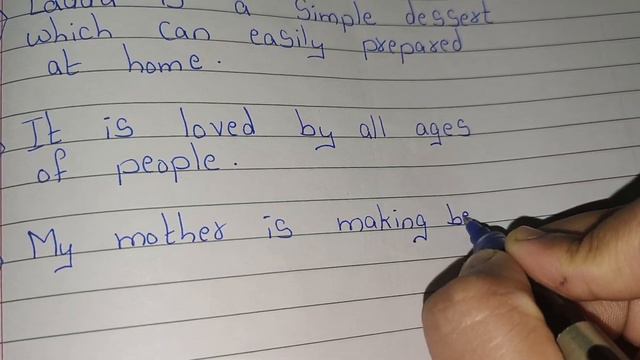 Laddu is a Simple dessert
which can easily prepared
at home.
It is loved by all ages
of people.
My mother is making be